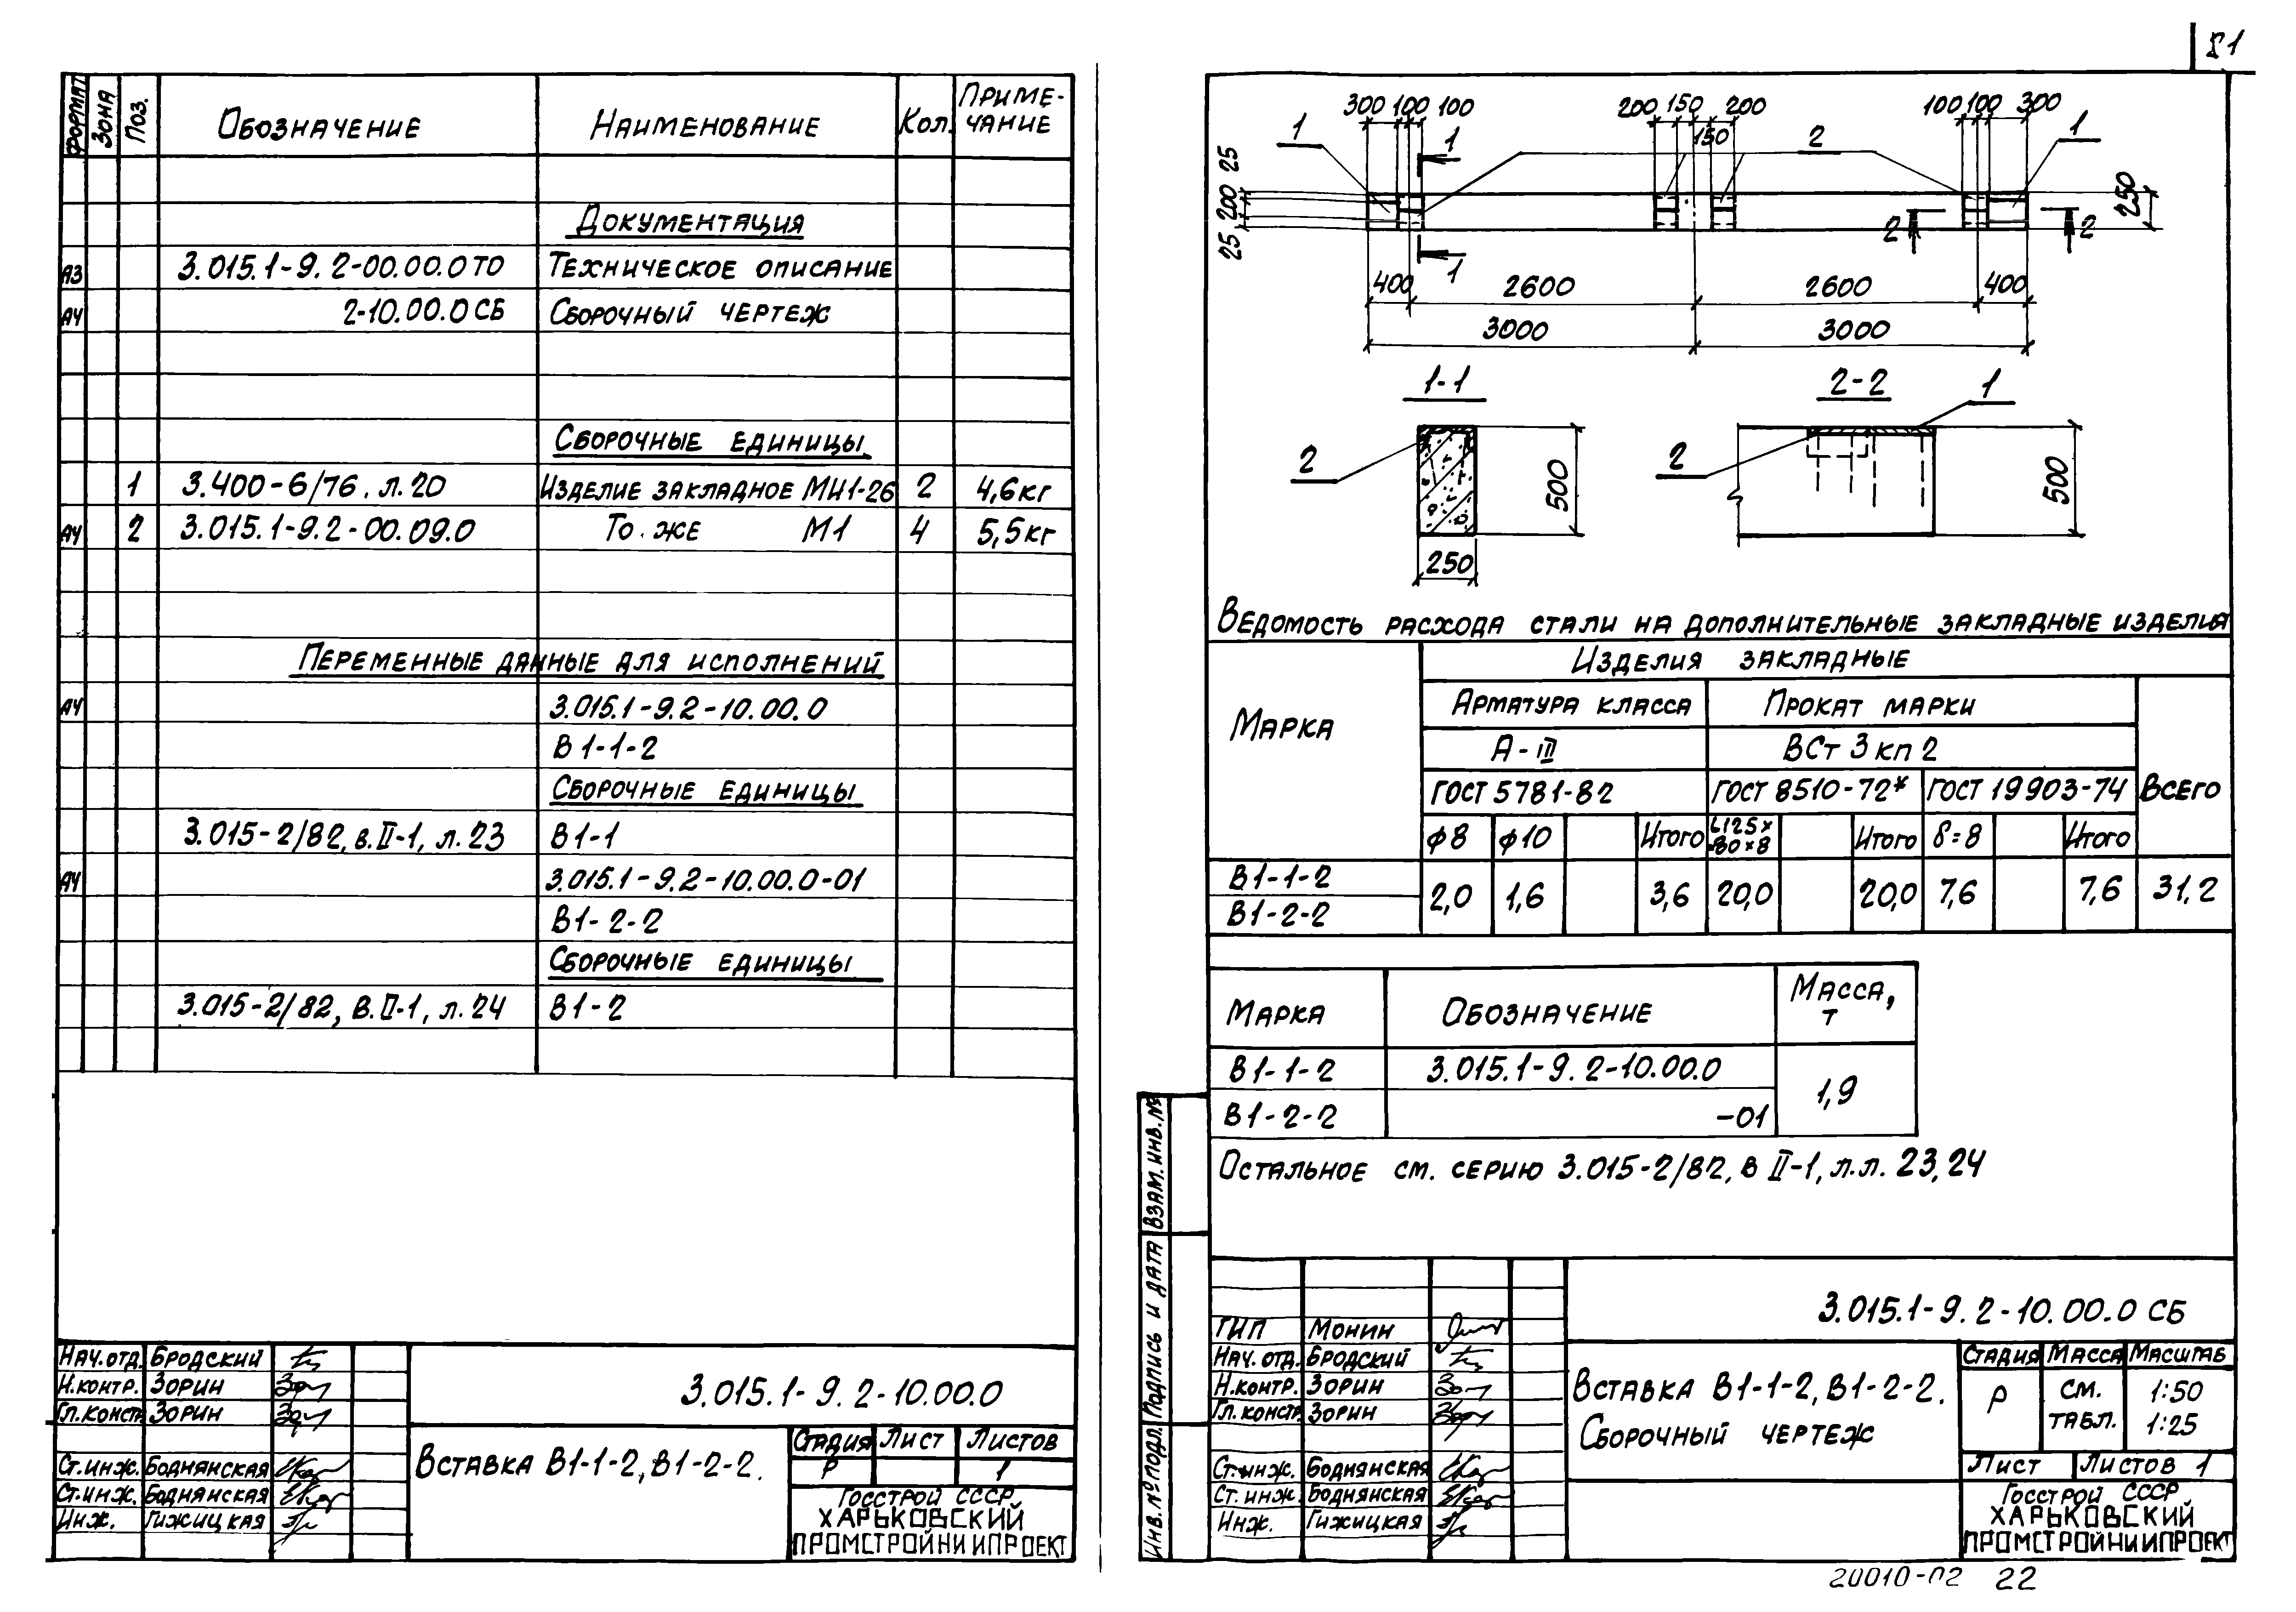 21
ФОРМАТ Зона Поз. Обозначение Наименование Кол. Примечание
Документация
А3 3.015.1-9.2-00.00.0ТО Техническое описание
А4 2-10.00.0СБ Сборочный чертеж
Сборочные единицы
1 3.400-6/76, л.20 Изделие закладное МИ1-26 2 4,6кг
А4 2 3.015.1-9.2-00.09.0 То же М1 4 5,5кг
Переменные данные для исполнений
А4 3.015.1-9.2-10.00.0
В1-1-2
Сборочные единицы
3.015-2/82, в.II-1, л.23 В1-1
А4 3.015.1-9.2-10.00.0-01
В1-2-2
Сборочные единицы
3.015-2/82, в.II-1, л.24 В1-2
Нач.отд. Бродский
Н.контр. Зорин
Гл.констр. Зорин
Ст.инж. Боднянская
Ст.инж. Боднянская
Инж. Гижицкая
3.015.1-9.2-10.00.0
Вставка В1-1-2, В1-2-2.
Стадия Лист Листов
Р 1
Госстрой СССР
ХАРЬКОВСКИЙ
ПРОМСТРОЙНИИПРОЕКТ
300 100 100 200 150 200 100 100 300
150
1 1 2 1
25 200 25
250
2 2
1
400 2600 2600 400
3000 3000
1-1
2
500
250
2-2
1
2
500
Ведомость расхода стали на дополнительные закладные изделия
Марка Изделия закладные
Арматура класса Прокат марки
А-III ВСт 3 кп 2
ГОСТ 5781-82 ГОСТ 8510-72* ГОСТ 19903-74 Всего
ф8 ф10 Итого L125×80×8 Итого δ=8 Итого
В1-1-2
В1-2-2
2,0 1,6 3,6 20,0 20,0 7,6 7,6 31,2
Марка Обозначение Масса, т
В1-1-2 3.015.1-9.2-10.00.0
В1-2-2 -01
1,9
Остальное см. серию 3.015-2/82, в II-1, л.л. 23,24
Взам.инв.№
Подпись и дата
Инв.№ подл.
ГИП Монин
Нач.отд. Бродский
Н.контр. Зорин
Гл.констр. Зорин
Ст.инж. Боднянская
Ст.инж. Боднянская
Инж. Гижицкая
3.015.1-9.2-10.00.0СБ
Вставка В1-1-2, В1-2-2.
Сборочный чертеж
Стадия Масса Масштаб
Р см. табл. 1:50 1:25
Лист Листов 1
Госстрой СССР
ХАРЬКОВСКИЙ
ПРОМСТРОЙНИИПРОЕКТ
20010-02 22